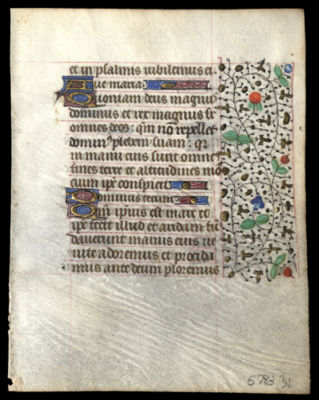 et in psalmis iubilemus ei.
Aue maria.
Quoniam deus magnus
dominus et rex magnus sr
omnes deos: qm nō repellet
domin9 plebem suam: q2
in manu eius sunt omnes
fines terre et altitudines mō
cium ipe conspicit
Dominus tecum.
Quoniam ipsius est mare et
ipe fecit illud et aridam fū
dauerunt manus eius ue
nite adoremus et procida
mus ante deum ploremus
5783